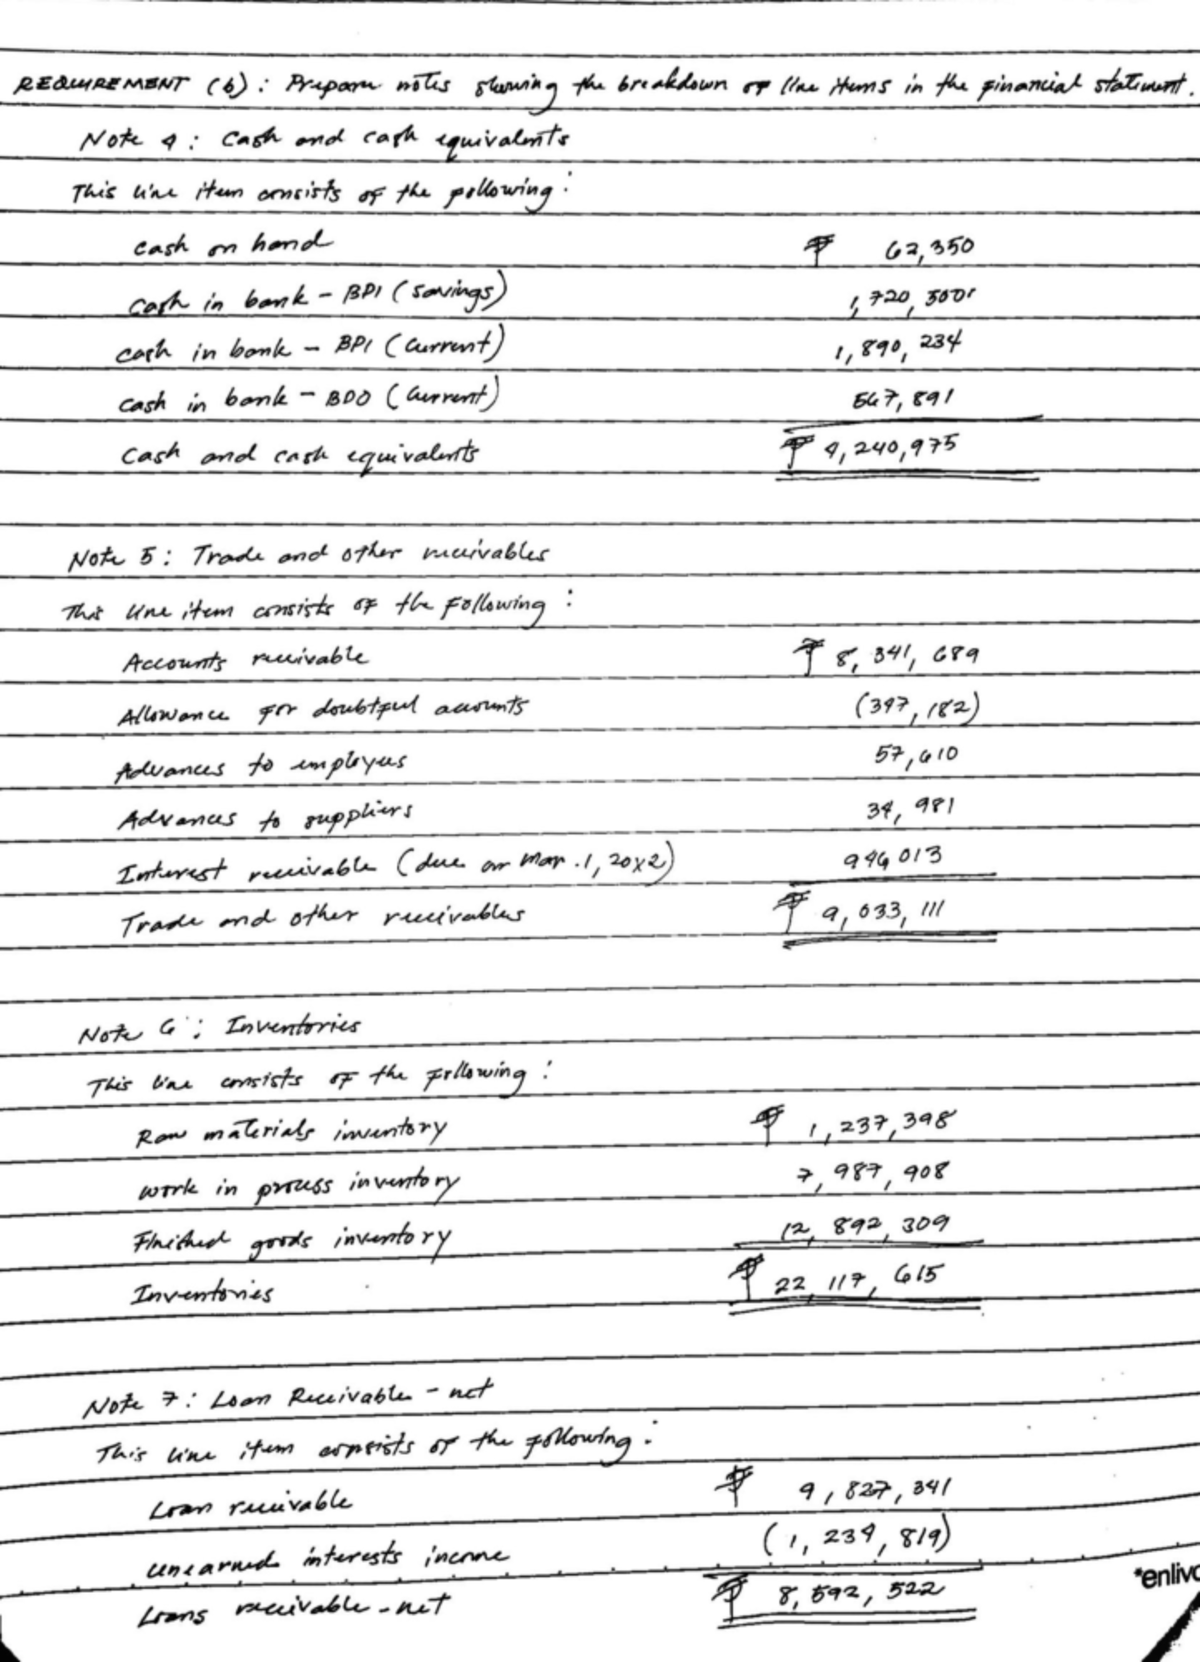 REQUIREMENT (b): Prepare notes showing the breakdown of line items in the financial statement.
Note 4: Cash and cash equivalents
This line item consists of the following:
Cash on hand ₱ 62,350
Cash in bank - BPI (Savings) 1,720,500
Cash in bank - BPI (Current) 1,890,234
Cash in bank - BDO (Current) 567,891
Cash and cash equivalents ₱ 4,240,975
Note 5: Trade and other receivables
This line item consists of the following:
Accounts receivable ₱ 8,341,689
Allowance for doubtful accounts (347,182)
Advances to employees 57,610
Advances to suppliers 34,981
Interest receivable (due on Mar. 1, 20x2) 946,013
Trade and other receivables ₱ 9,033,111
Note 6: Inventories
This line consists of the following:
Raw materials inventory ₱ 1,237,398
Work in process inventory 7,987,908
Finished goods inventory 12,892,309
Inventories ₱ 22,117,615
Note 7: Loan Receivable - net
This line item consists of the following:
Loan receivable ₱ 9,827,341
Unearned interests income (1,234,819)
Loans receivable - net ₱ 8,592,522